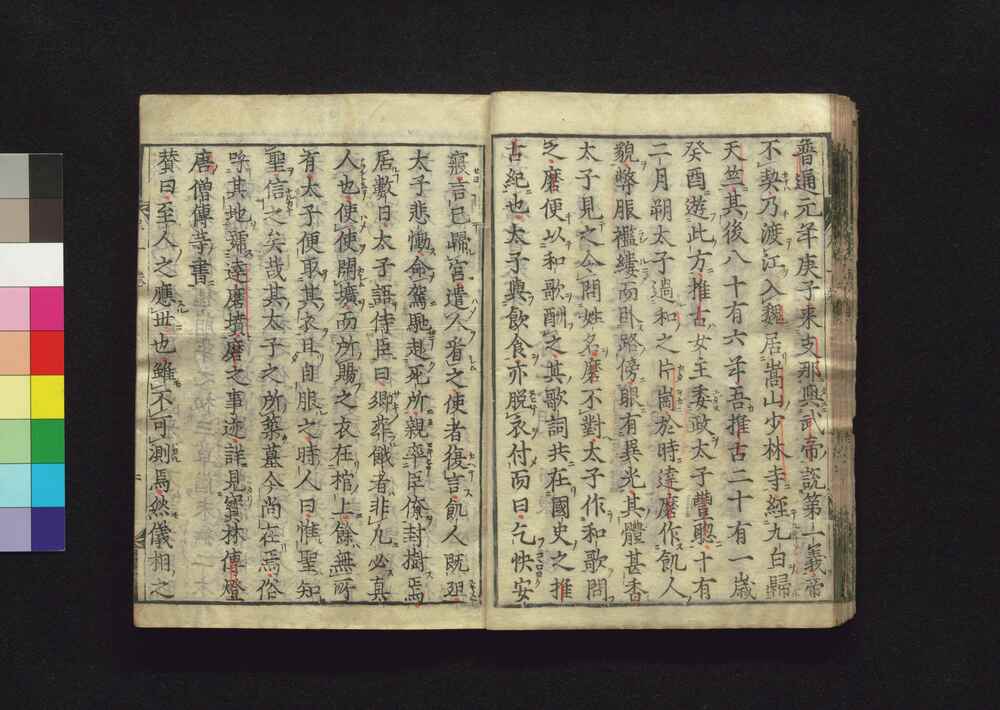 普通元年庚子來支那與武帝説第一義帝
不契乃渡江入魏居嵩山少林寺經九白歸
天竺其後八十有六年吾推古二十有一歳
癸酉遊此方推古女主委政太子豐聰十有
二月朔太子過和之片岡於時達磨作飢人
貌弊服襤縷而臥路傍眼有異光其體甚香
太子見之令問姓名磨不對太子作和歌問
之磨便以和歌酬之其歌詞共在國史之推
古紀也太子與飲食亦脱衣付而曰乞快安
寢言已歸宮遣人看之使者復言飢人既殂
太子悲慟命駕馳赴死所親率臣僚封樹焉
居數日太子語侍臣曰郷葬餓者非凡必真
人也使使開壙而所賜之衣在棺上餘無所
有太子便取其衣日自服之時人曰惟聖知
聖信之矣哉其太子之所築墓今尚在焉俗
呼其地稱達磨墳磨之事迹詳見寶林傳燈
唐僧傳等書
賛曰至人之應世也雖不可測焉然儀相之